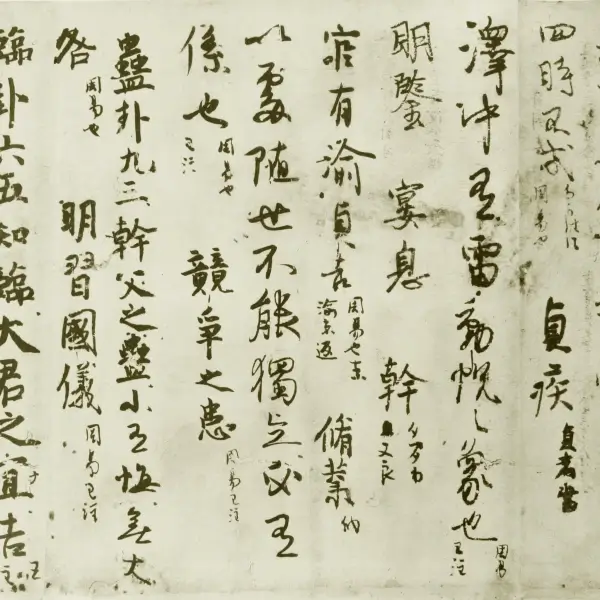 四時不忒 周易也 貞疾 貞者
澤中有雷動悅之象也 周易 王注
明鑒 宴息 幹 又良
官有渝貞吉 周易也 渝京返 脩業
以處随世不能獨立必有
係也 周易也 王注 競爭之患 周易王注
蠱卦九三幹父之蠱小有悔无大
咎 周易也 明習國儀 周易王注
臨卦六五知臨大君之宜吉